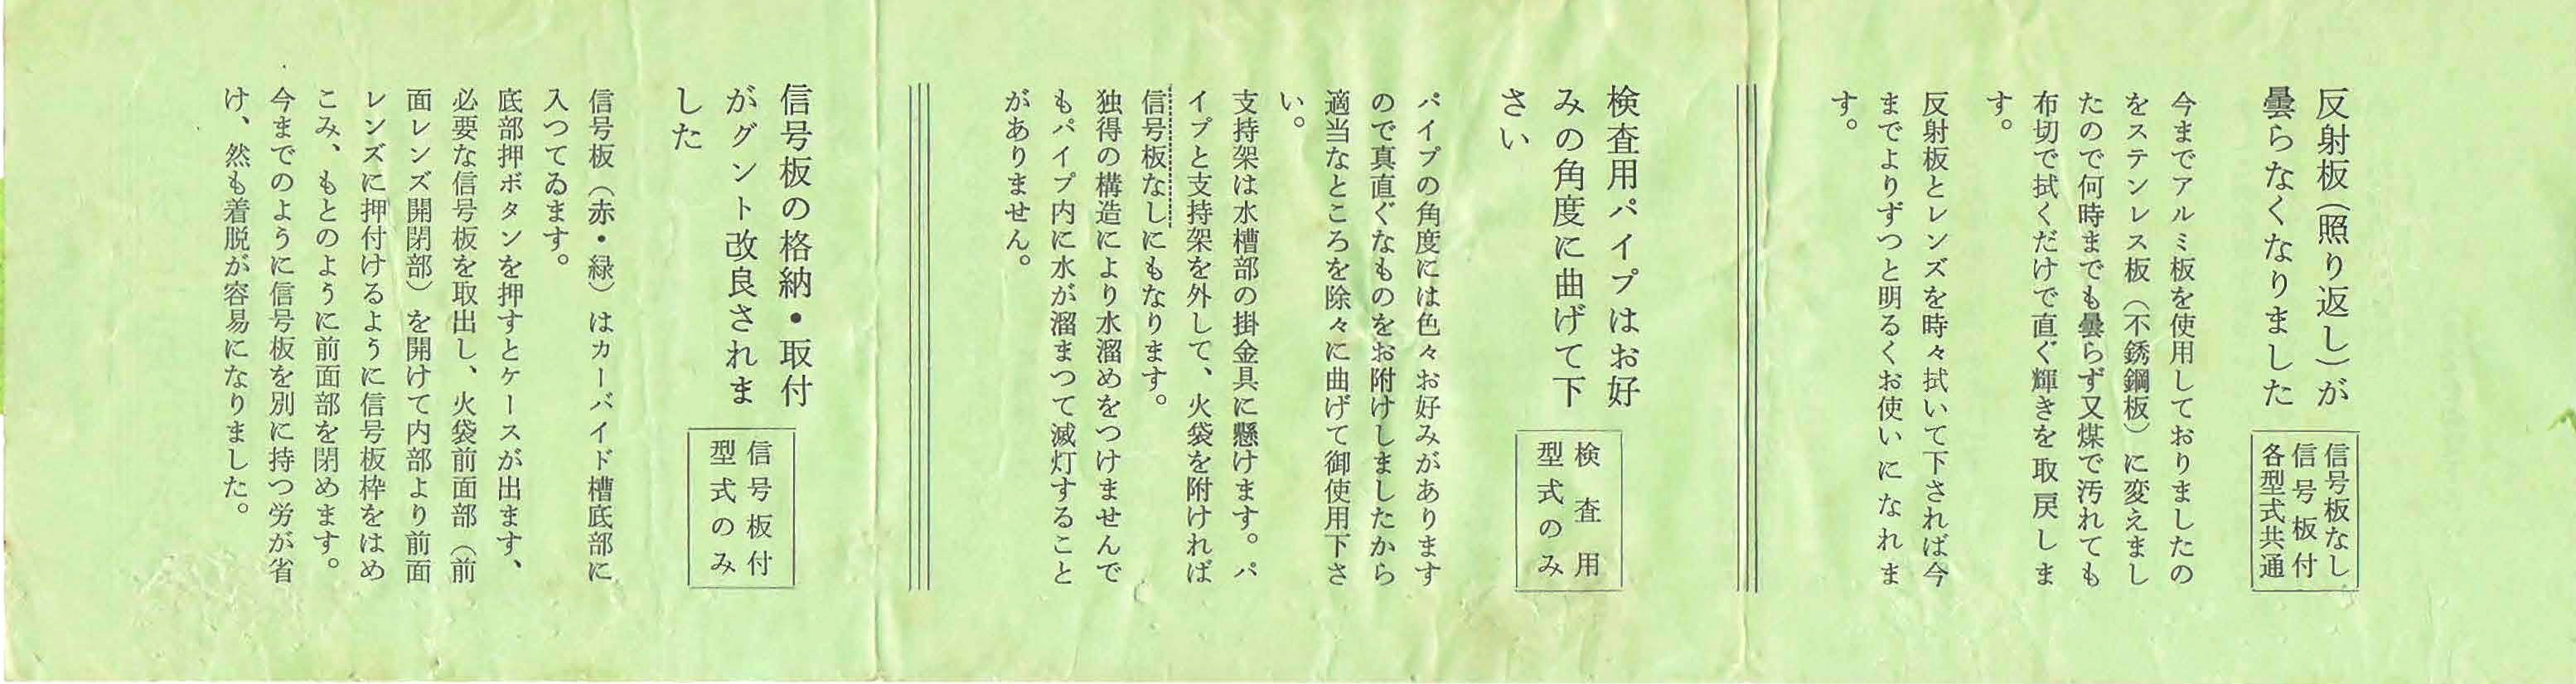 反射板（照り返し）が
曇らなくなりました
信号板なし
信号板付
各型式共通
今までアルミ板を使用しておりましたの
をステンレス板（不銹鋼板）に変えまし
たので何時までも曇らず又煤で汚れても
布切で拭くだけで直ぐ輝きを取戻しま
す。
反射板とレンズを時々拭いて下されば今
までよりずつと明るくお使いになれま
す。
検査用パイプはお好
みの角度に曲げて下
さい
検査用
型式のみ
パイプの角度には色々お好みがあります
ので真直ぐなものをお附けしましたから
適当なところを除々に曲げて御使用下さ
い。
支持架は水槽部の掛金具に懸けます。パ
イプと支持架を外して、火袋を附ければ
信号板なしにもなります。
独得の構造により水溜めをつけませんで
もパイプ内に水が溜まつて滅灯すること
がありません。
信号板の格納・取付
がグント改良されま
した
信号板付
型式のみ
信号板（赤・緑）はカーバイド槽底部に
入つてゐます。
底部押ボタンを押すとケースが出ます、
必要な信号板を取出し、火袋前面部（前
面レンズ開閉部）を開けて内部より前面
レンズに押付けるように信号板枠をはめ
こみ、もとのように前面部を閉めます。
今までのように信号板を別に持つ労が省
け、然も着脱が容易になりました。